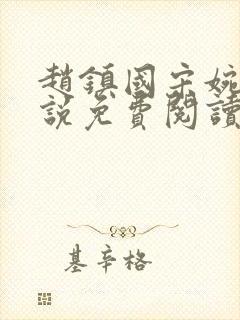 趙鎮國宋婉
說免費閱讀
基辛格